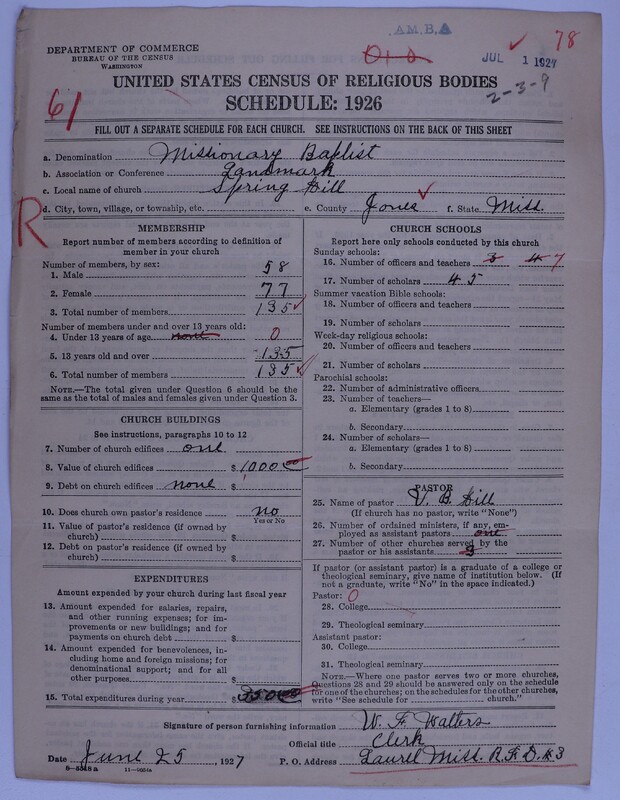 A.M.B.A
78
DEPARTMENT OF COMMERCE
BUREAU OF THE CENSUS
WASHINGTON
JUL 1 1927
2-3-9
UNITED STATES CENSUS OF RELIGIOUS BODIES
SCHEDULE: 1926
61
FILL OUT A SEPARATE SCHEDULE FOR EACH CHURCH. SEE INSTRUCTIONS ON THE BACK OF THIS SHEET
a. Denomination Missionary Baptist
b. Association or Conference Landmark
c. Local name of church Spring Hill
R
d. City, town, village, or township, etc. e. County Jones f. State Miss.
MEMBERSHIP
Report number of members according to definition of
member in your church
Number of members, by sex:
1. Male 58
2. Female 77
3. Total number of members 135
Number of members under and over 13 years old:
4. Under 13 years of age none 0
5. 13 years old and over 135
6. Total number of members 135
NOTE.—The total given under Question 6 should be
same as the total of males and females given under Question 3.
CHURCH BUILDINGS
See instructions, paragraphs 10 to 12
7. Number of church edifices one
8. Value of church edifices $ 1000.00
9. Debt on church edifices none $
10. Does church own pastor's residence no
Yes or No
11. Value of pastor's residence (if owned by
church) $
12. Debt on pastor's residence (if owned by
church) $
EXPENDITURES
Amount expended by your church during last fiscal year
13. Amount expended for salaries, repairs,
and other running expenses; for im-
provements or new buildings; and for
payments on church debt $
14. Amount expended for benevolences, in-
cluding home and foreign missions; for
denominational support; and for all
other purposes $
15. Total expenditures during year $ 350.00
CHURCH SCHOOLS
Report here only schools conducted by this church
Sunday schools:
16. Number of officers and teachers 3 4 7
17. Number of scholars 45
Summer vacation Bible schools:
18. Number of officers and teachers
19. Number of scholars
Week-day religious schools:
20. Number of officers and teachers
21. Number of scholars
Parochial schools:
22. Number of administrative officers
23. Number of teachers—
a. Elementary (grades 1 to 8)
b. Secondary
24. Number of scholars—
a. Elementary (grades 1 to 8)
b. Secondary
PASTOR
25. Name of pastor V. B. Hill
(If church has no pastor, write "None")
26. Number of ordained ministers, if any, em-
ployed as assistant pastors one
27. Number of other churches served by the
pastor or his assistants 3
If pastor (or assistant pastor) is a graduate of a college or
theological seminary, give name of institution below. (If
not a graduate, write "No" in the space indicated.)
Pastor: 0
28. College
29. Theological seminary
Assistant pastor:
30. College
31. Theological seminary
NOTE.—Where one pastor serves two or more churches,
Questions 28 and 29 should be answered only on the schedule
for one of the churches; on the schedules for the other churches,
write "See schedule for church."
Signature of person furnishing information W. F. Walters
Official title Clerk
Date June 25, 1927 P. O. Address Laurel Miss. R.F.D. #3